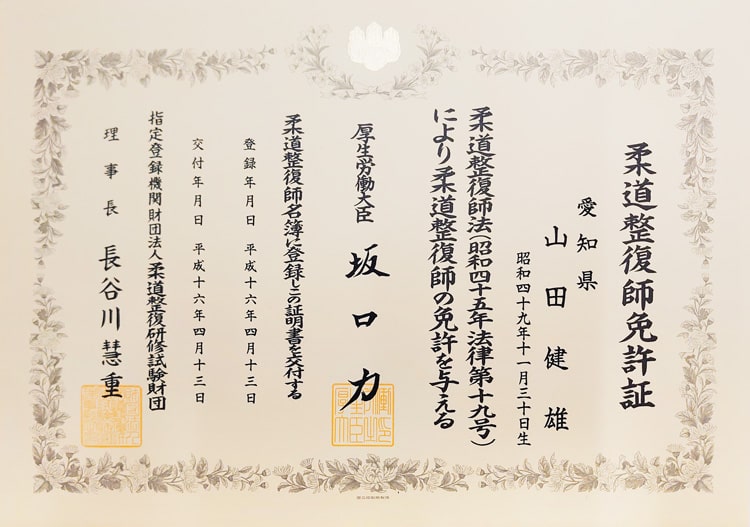 柔道整復師免許証
愛知県
山田健雄
昭和四十九年十一月三十日生
柔道整復師法(昭和四十五年法律第十九号)
により柔道整復師の免許を与える
厚生労働大臣 坂口力
柔道整復師名簿に登録しこの証明書を交付する
登録年月日 平成十六年四月十三日
交付年月日 平成十六年四月十三日
指定登録機関財団法人柔道整復研修試験財団
理事長 長谷川慧重